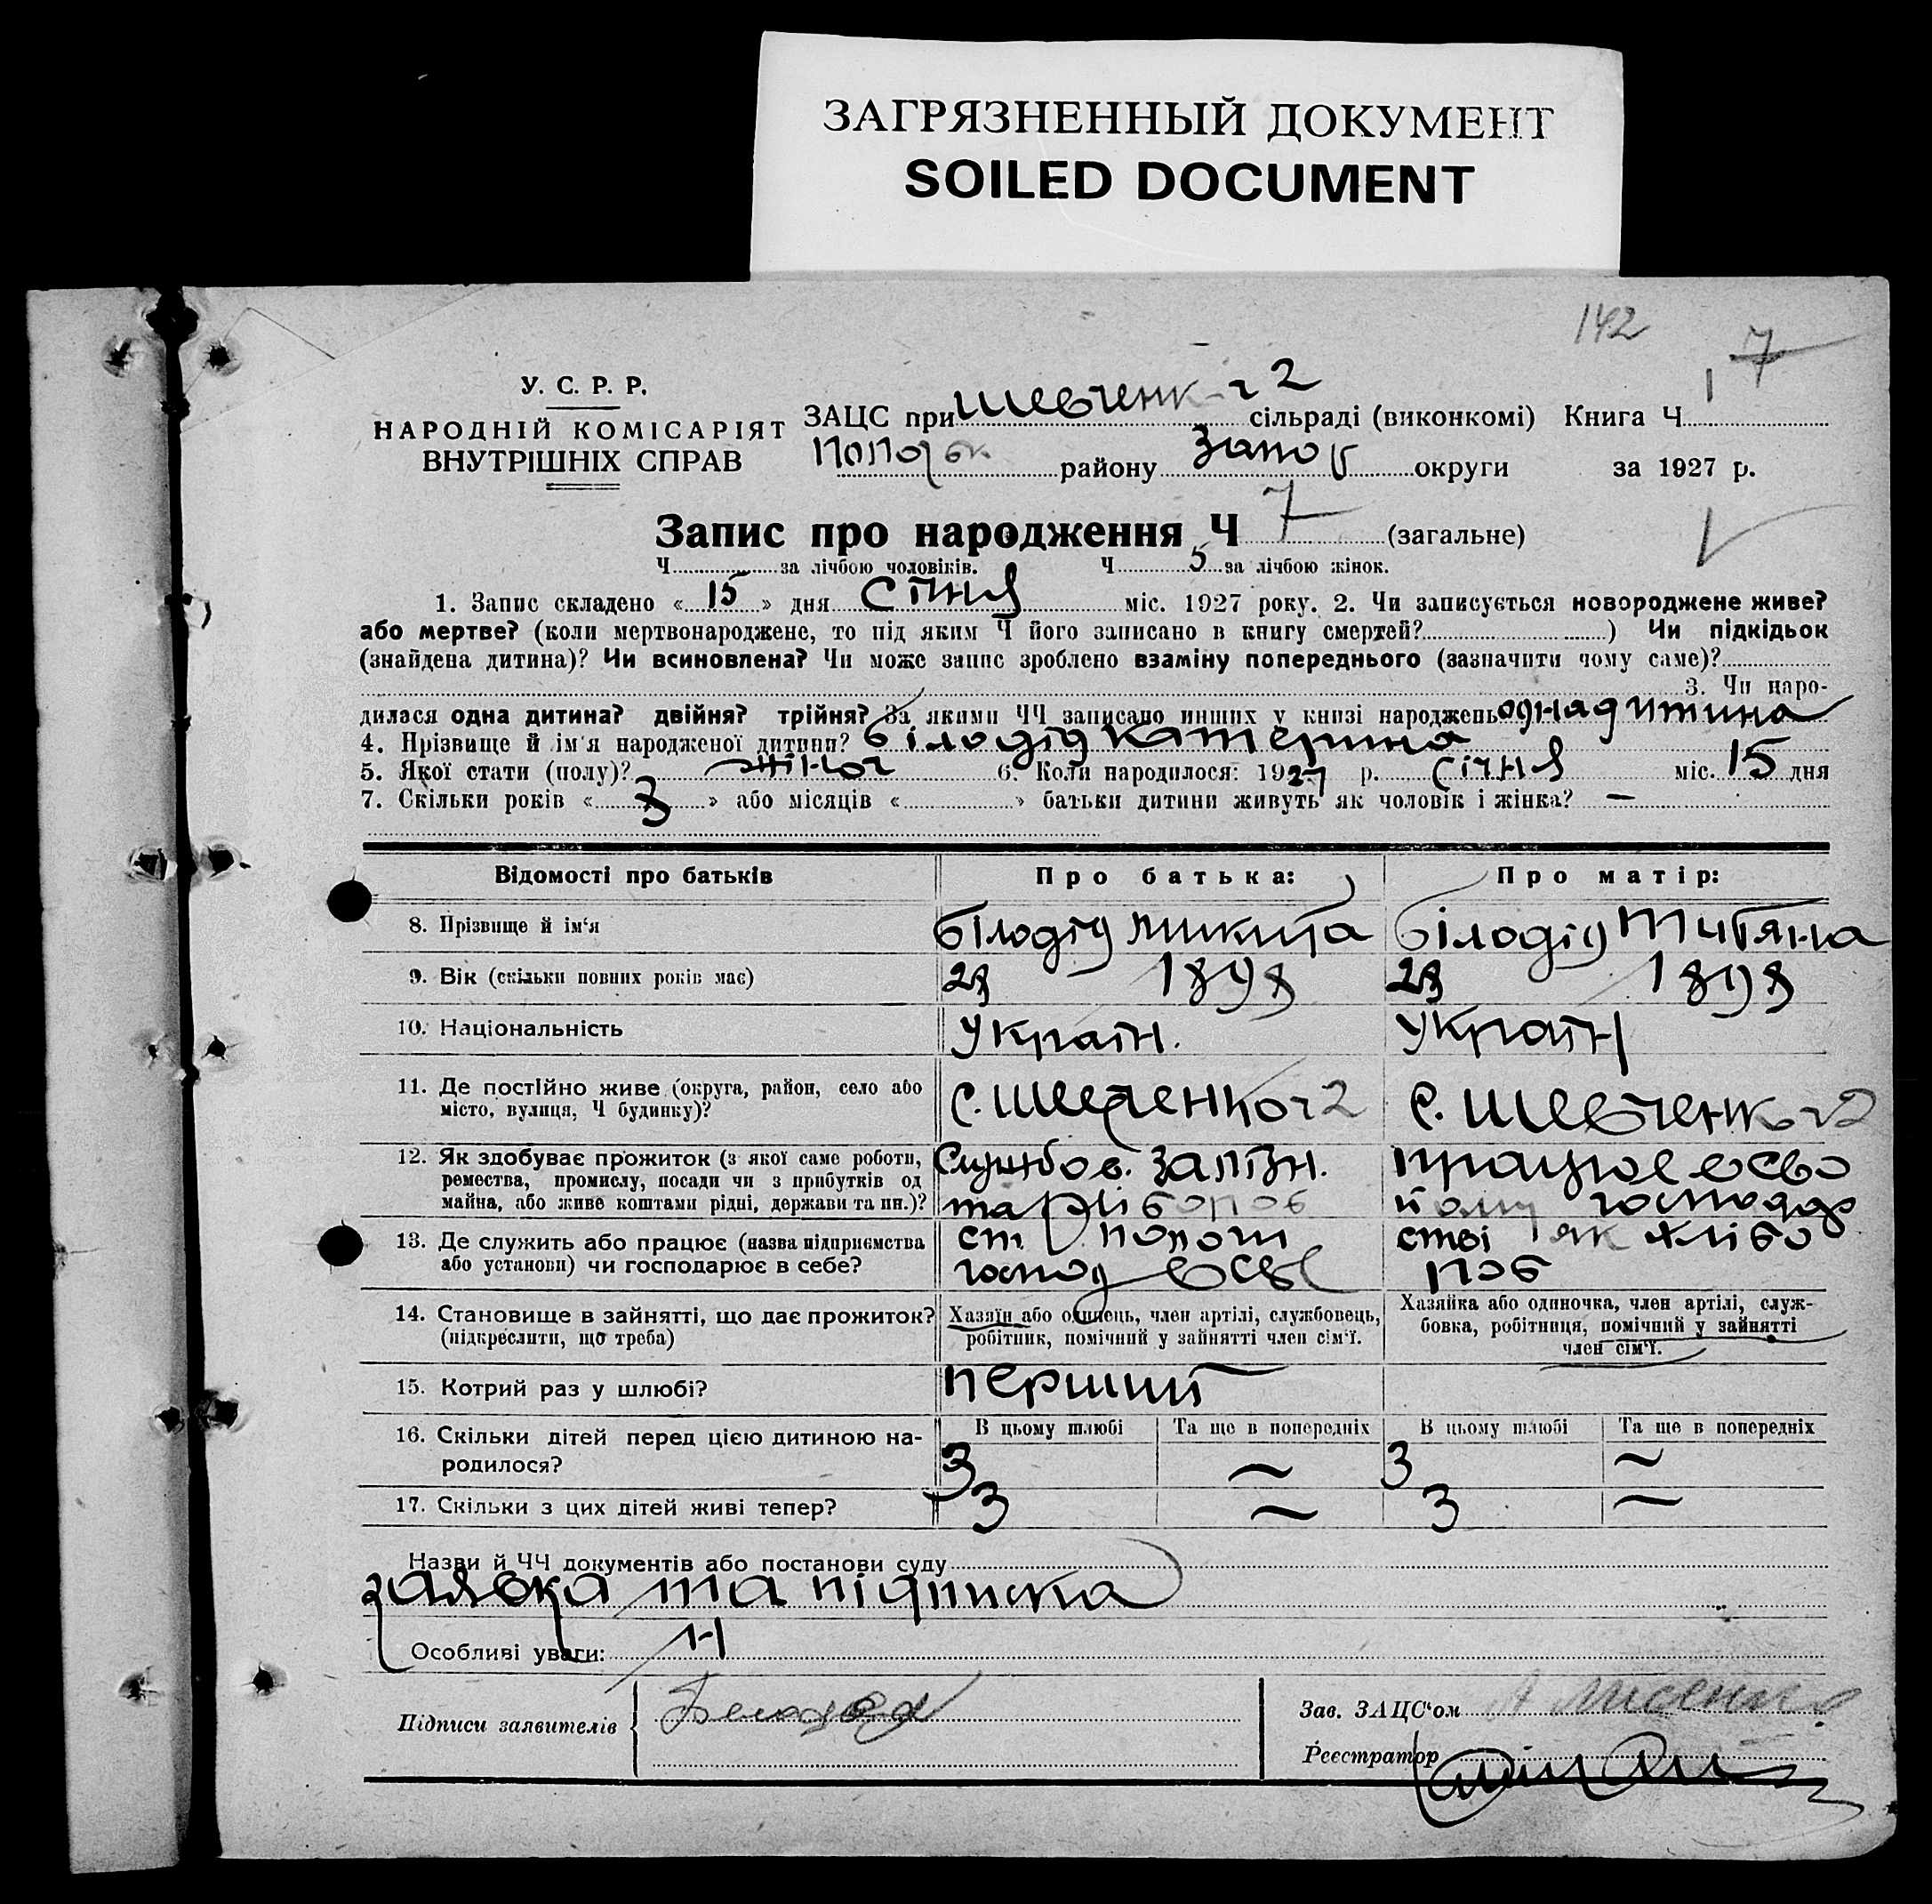 ЗАГРЯЗНЕННЫЙ ДОКУМЕНТ
SOILED DOCUMENT
142
7
У. С. Р. Р.
НАРОДНІЙ КОМІСАРІЯТ
ВНУТРІШНІХ СПРАВ
ЗАЦС при Шевченк 2 сільраді (виконкомі) Книга Ч 1
району Запор округи за 1927 р.
Запис про народження Ч 7 (загальне)
Ч за лічбою чоловіків. Ч 5 за лічбою жінок.
1. Запис складено «15» дня Січня міс. 1927 року. 2. Чи записується новороджене живе?
або мертве? (коли мертвонароджене, то під яким Ч його записано в книгу смертей? ) Чи підкідьок
(знайдена дитина)? Чи всиновлена? Чи може запис зроблено взаміну попереднього (зазначити чому саме)?
3. Чи наро-
дилася одна дитина? двійня? трійня? За якими ЧЧ записано инших у книзі народжень одна дитина
4. Прізвище й ім'я народженої дитини? Білодід Катерина
5. Якої стати (полу)? жіноч 6. Коли народилося: 1927 р. Січня міс. 15 дня
7. Скільки років «8» або місяців « » батьки дитини живуть як чоловік і жінка? —
Відомості про батьків Про батька: Про матір:
8. Прізвище й ім'я Білодід Микита Білодід Титяна
9. Вік (скільки повних років має) 28 1898 28 1898
10. Національність Україн. Україн
11. Де постійно живе (округа, район, село або
місто, вулиця, Ч будинку)? с. Шевченко 2 с. Шевченко 2
12. Як здобуває прожиток (з якої саме роботи,
ремества, промислу, посади чи з прибутків од
майна, або живе коштами рідні, держави та ин.)?
Службов. Залізн.
та хлібороб
працює в сво
йому господар
13. Де служить або працює (назва підприємства
або установи) чи господарює в себе?
ст.
господ в себе
стві як хлібо
роб
14. Становище в зайнятті, що дає прожиток?
(підкреслити, що треба)
Хазяїн або одинець, член артілі, службовець,
робітник, помічний у зайнятті член сім'ї.
Хазяйка або одиночка, член артілі, служ-
бовка, робітниця, помічний у зайнятті
член сім'ї.
15. Котрий раз у шлюбі? перший
16. Скільки дітей перед цією дитиною на-
родилося?
В цьому шлюбі Та ще в попередніх В цьому шлюбі Та ще в попередніх
3 — 3 —
17. Скільки з цих дітей живі тепер? 3 — 3 —
Назви й ЧЧ документів або постанови суду
заявка та підписка
Особливі уваги: Н
Підписи заявителів
Зав. ЗАЦС'ом А Лисенко
Реєстратор